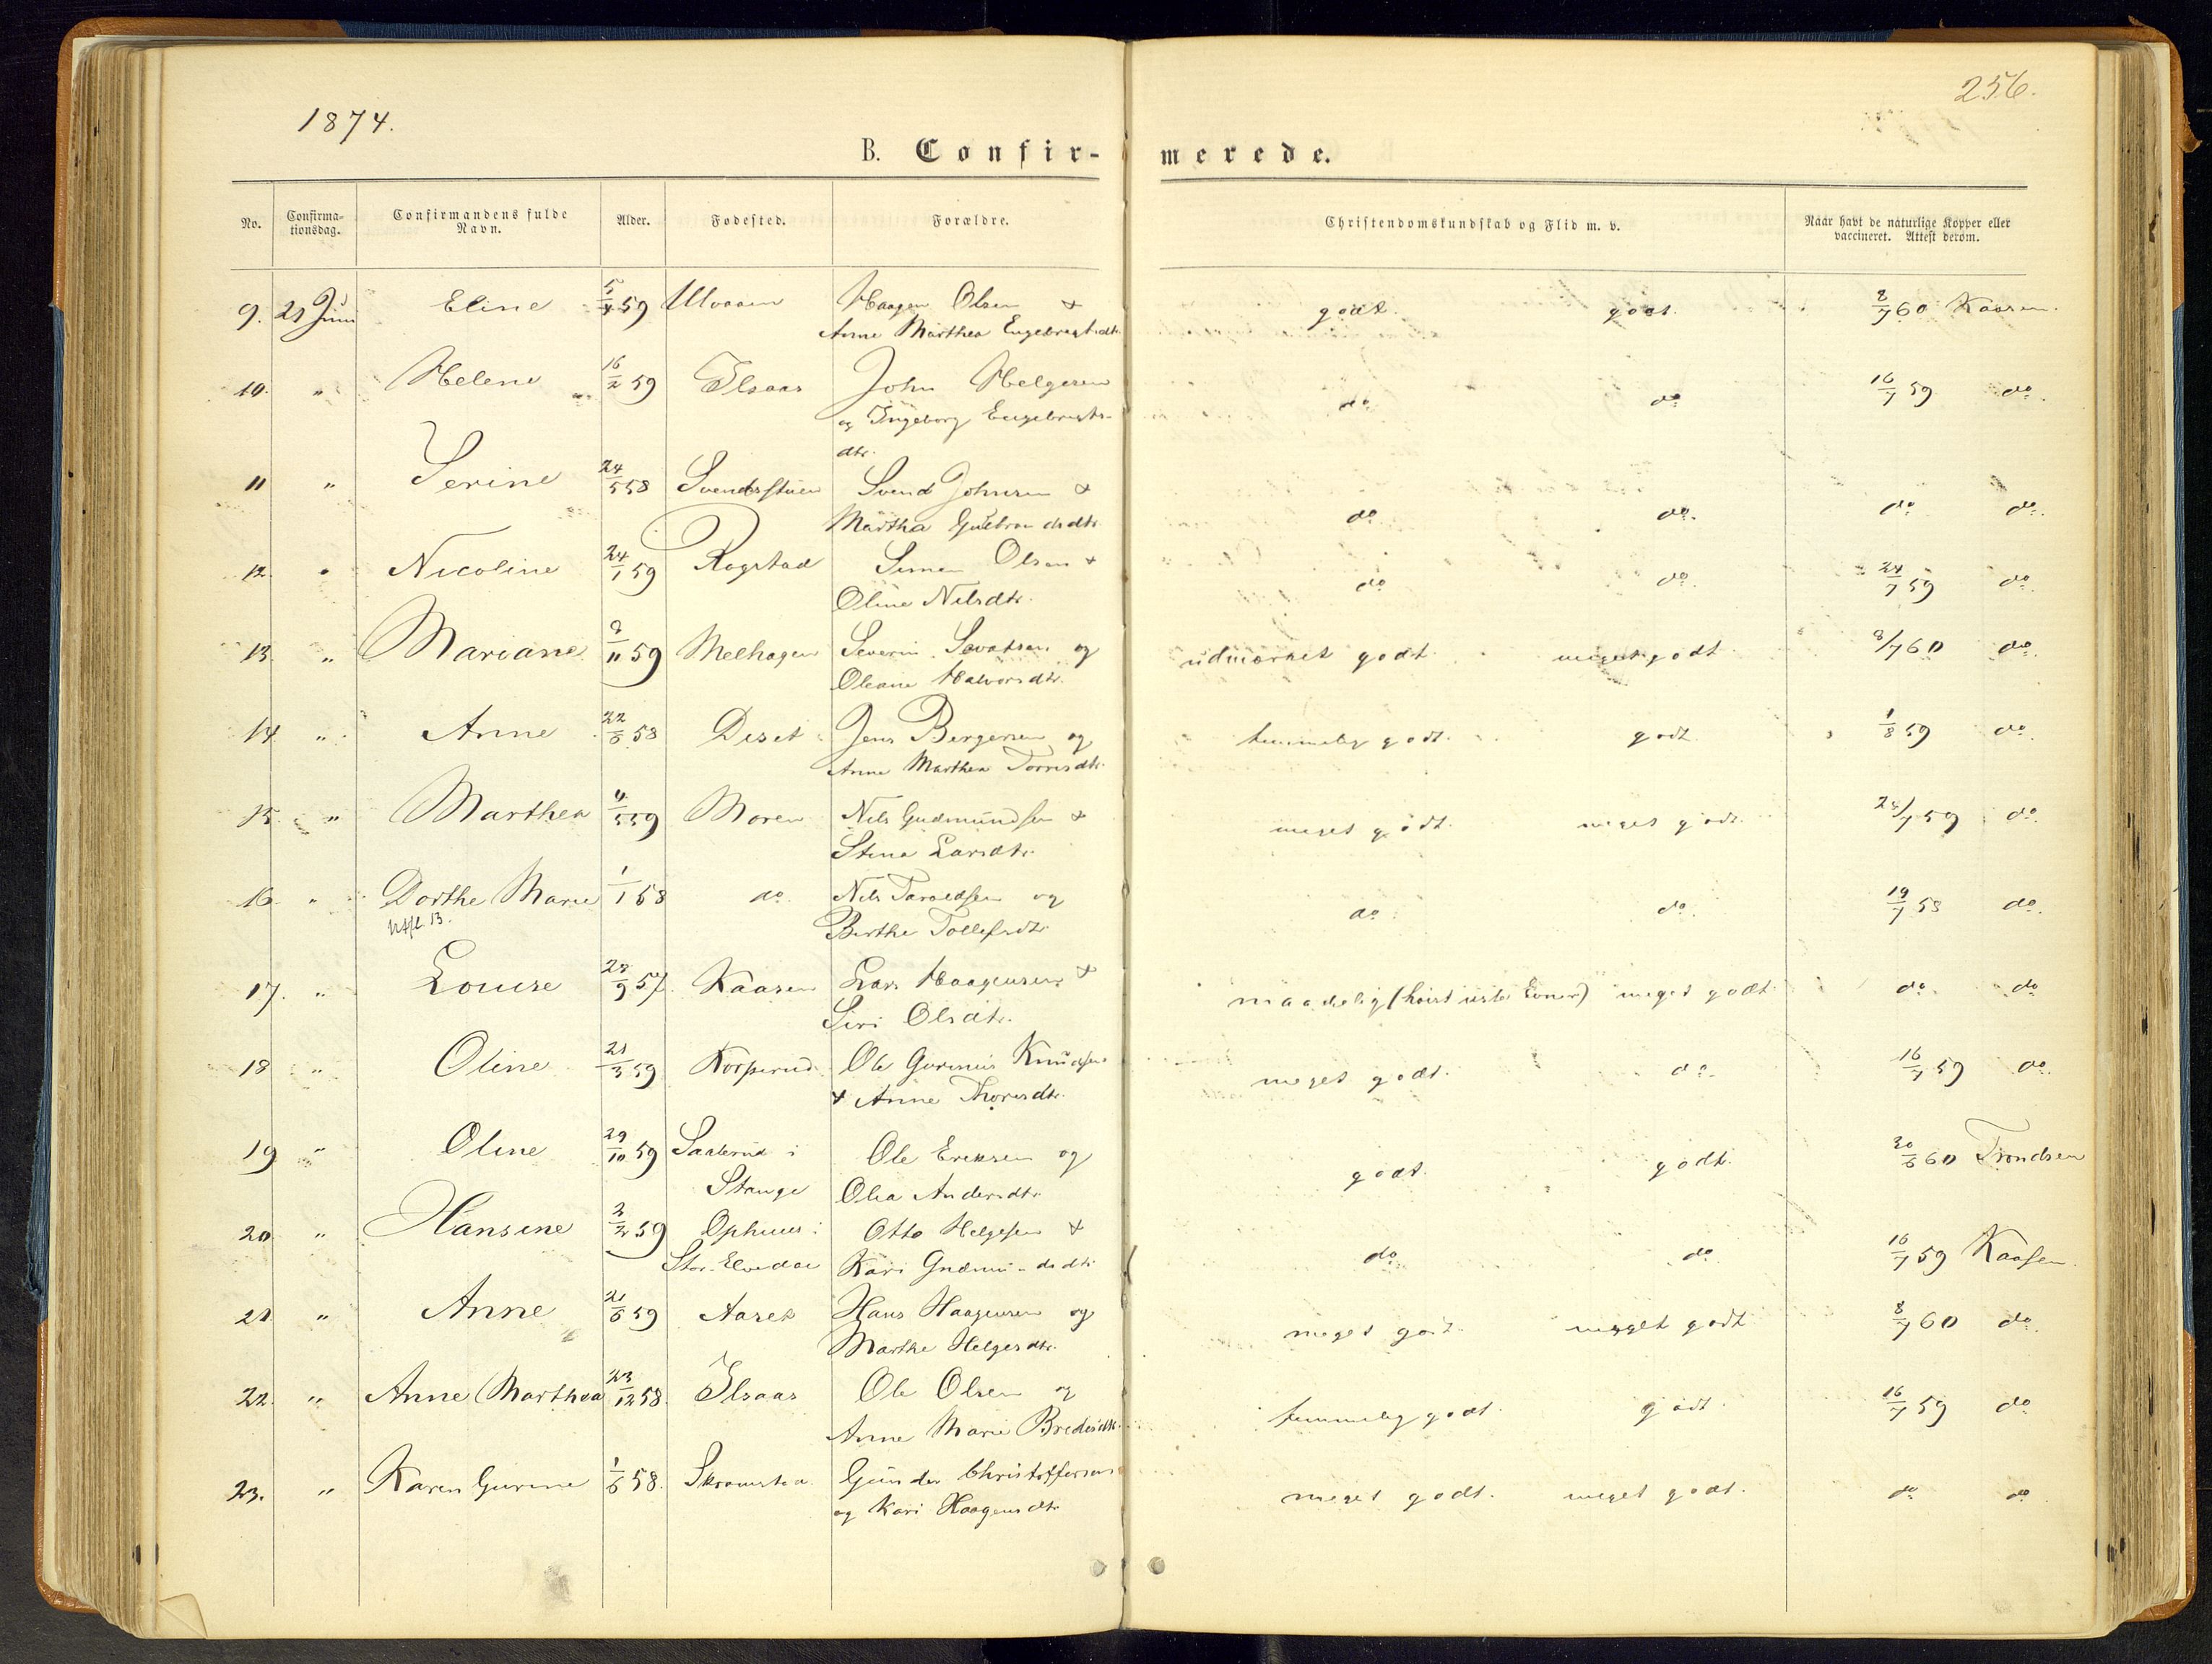 1874.
256.
B. Confir-
merede.
No. Confirma-
tionsdag. Confirmandens fulde
Navn. Alder. Fødested. Forældre. Christendomskundskab og Flid m. v. Naar havt de naturlige Kopper eller
vaccineret. Attest derom.
9. 21 Juni Eline 5/4 59 Ulvaaen Haagen Olsen & godt. godt. 8/7 60 Kaasen.
Anne Marthea Engebregtsdtr.
10. " Helene 16/2 59 Elsaas John Helgesen do do 16/7 59 do.
og Ingeborg Engebregts-
dtr.
11 " Serine 24/5 58 Svendsstuen Svend Johnsen & do do. do do.
Martha Gulbrandsdtr.
12. " Nicoline 24/1 59 Rogstad Simen Olsen & do do. 24/7 59 do.
Oline Nilsdtr.
13 " Mariane 9/11 59 Melhagen Severin Sevatsen og udmærket godt. meget godt 8/7 60 do.
Oleane Halvorsdtr.
14 " Anne 22/6 58 Deset Jens Bergersen og temmelig godt. godt 1/8 59 do.
Anne Marthea Torresdtr.
15 " Marthea 4/5 59 Moren Nils Gudmundsen & meget godt. meget godt. 24/7 59 do.
Stina Larsdtr.
16 " Dorthe Marie 1/1 58 do. Nils Taraldsen og do. do. 19/7 58 do.
Berthe Tollefsdtr
17. " Louise 28/9 57. Kaasen Lars Haagensen & maadelig (høist usle Evner) meget godt. do. do
Siri Olsdtr.
18 " Oline 21/3 59 Korperud Ole Gurinius Knudsen meget godt. do. 16/7 59 do.
& Anne Thoresdtr.
19 " Oline 29/10 59 Saaterud i Ole Eriksen og godt. godt. 30/6 60 Trondsen
Stange Olia Andersdtr.
20 " Hansine 2/2 59 Ophuus i Otto Helgesen & do. do 16/7 59 Kaasen.
Stor-Elvedal Kari Gudmundsdtr
21 " Anne 21/6 59 Aasek Hans Haagensen og meget godt. meget godt 8/7 60 do.
Marthe Helgesdtr.
22. " Anne Marthea 23/12 58. Elsaas Ole Olsen og temmelig godt. godt. 16/7 59 do
Anne Marie Bredesdtr.
23. " Karen Gurine 1/6 58. Skramstad Gunder Christoffersen meget godt. meget godt. do do.
og Kari Haagensdtr.